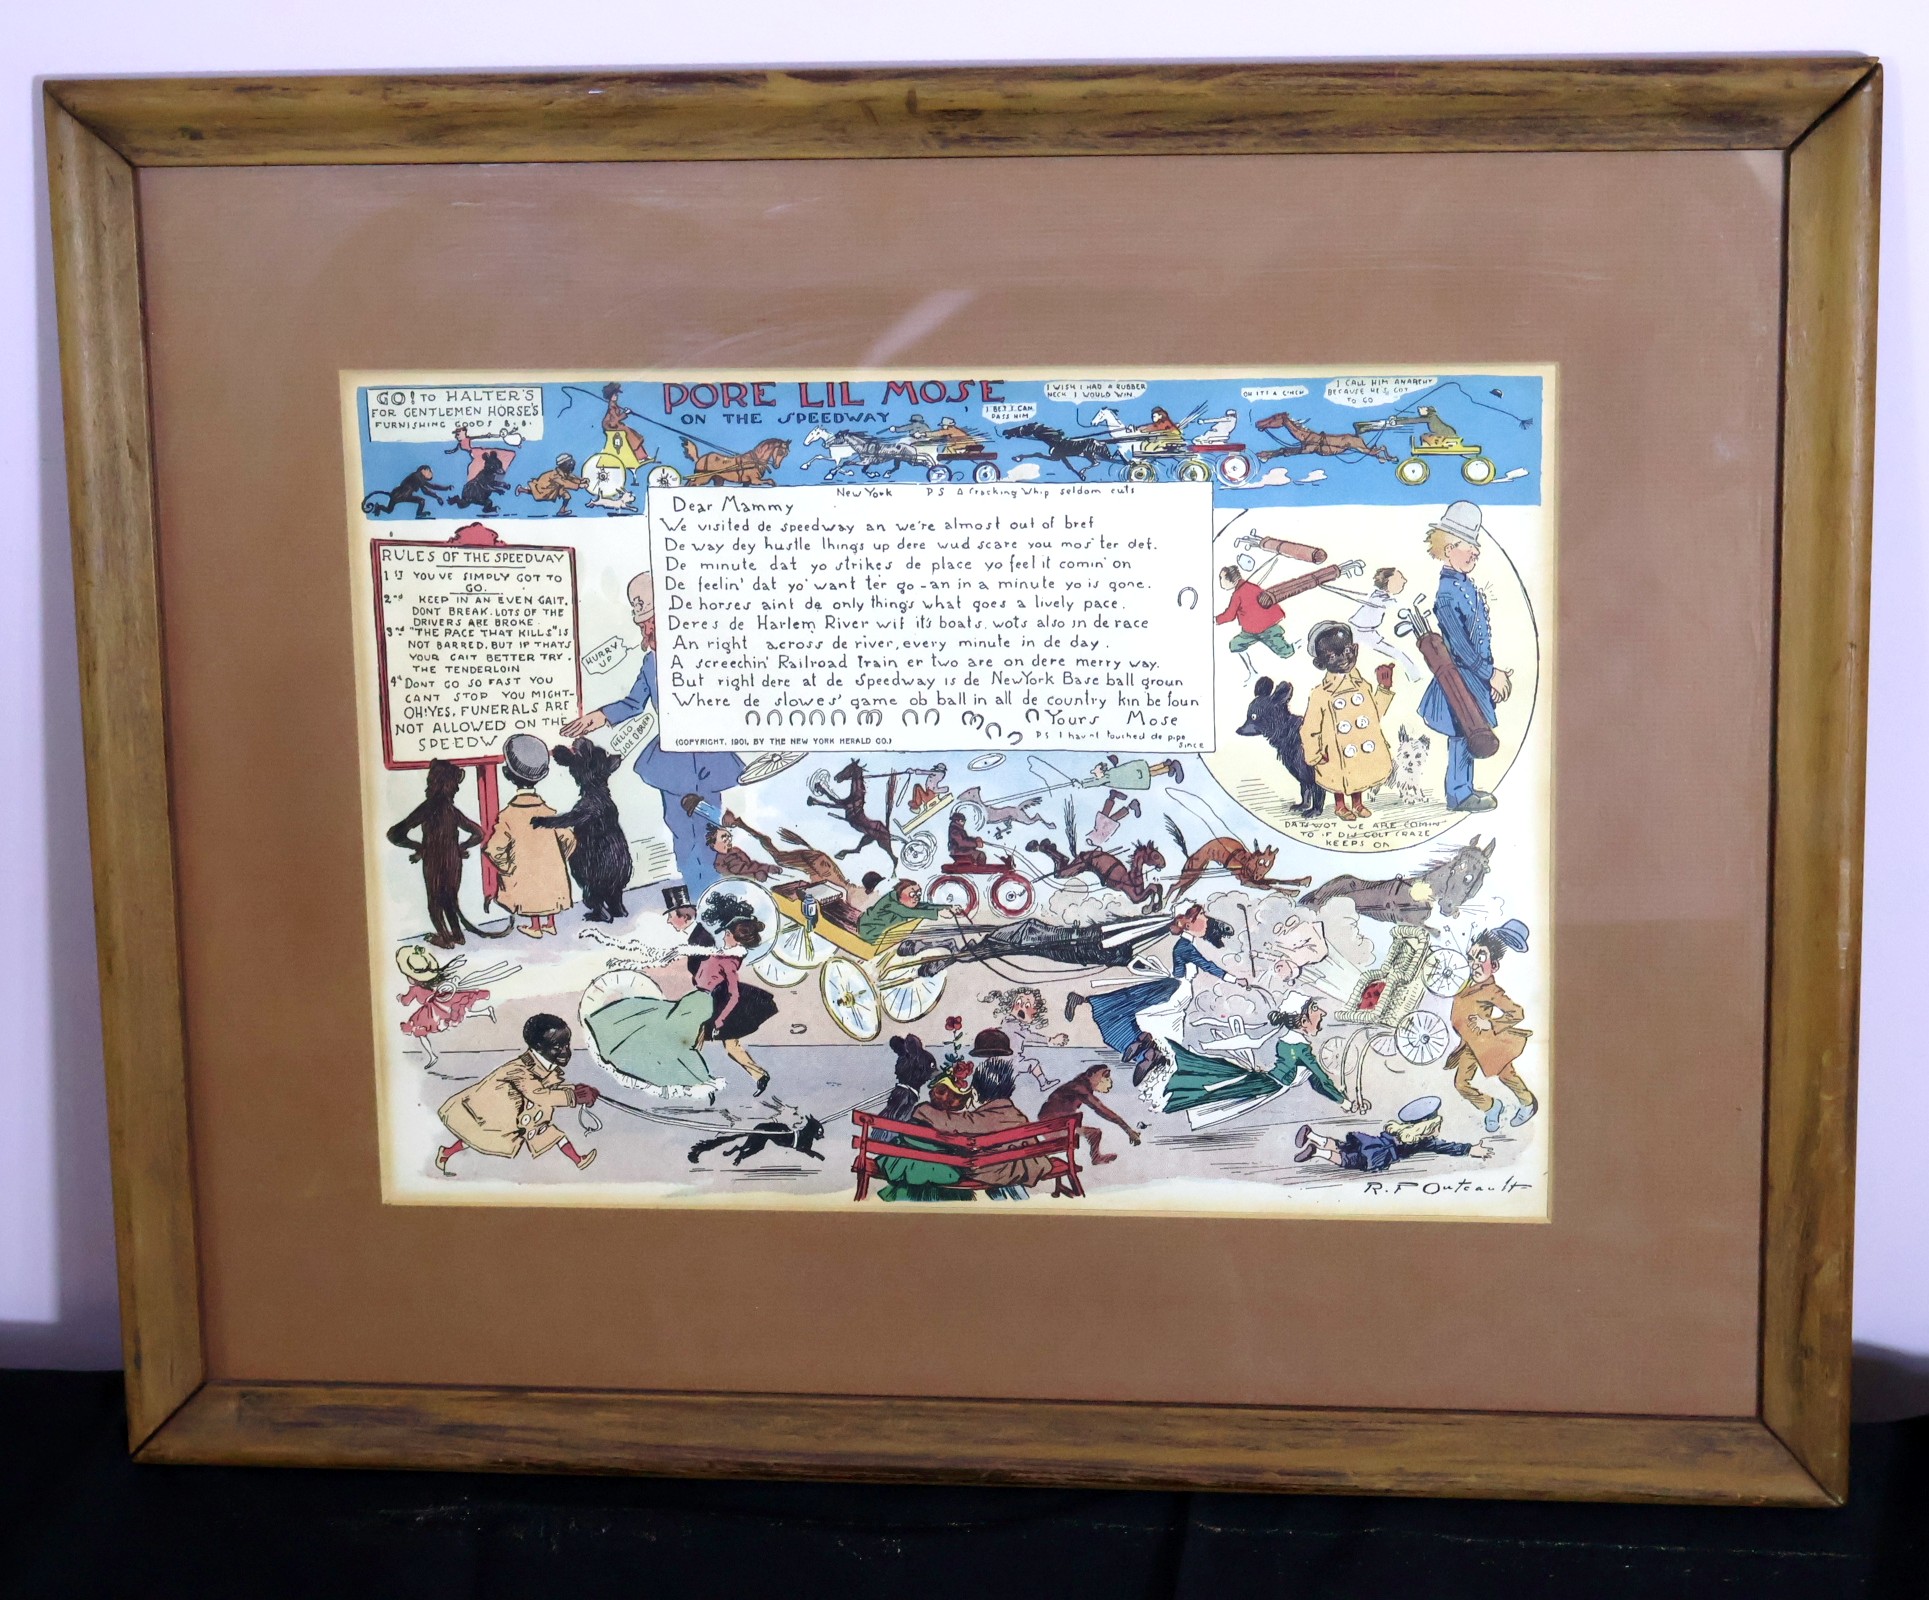 GO! TO HALTER'S
FOR GENTLEMEN HORSE'S
FURNISHING GOODS
PORE LIL MOSE
ON THE SPEEDWAY
I BET I CAN
PASS HIM
I WISH I HAD A RUBBER
NECK I WOULD WIN
OH IT'S A CINCH
I CALL HIM ANARCHY
BECAUSE HE'S GOT
TO GO
New York P S A Cracking Whip seldom cuts
Dear Mammy
We visited de speedway an we're almost out of bref
De way dey hustle things up dere wud scare you mos' ter def.
De minute dat yo strikes de place yo feel it comin' on
De feelin' dat yo' want ter go - an in a minute yo is gone.
De horses aint de only things what goes a lively pace.
Deres de Harlem River wif it's boats, wots also in de race
An right across de river, every minute in de day.
A screechin' Railroad Train er two are on dere merry way.
But right dere at de Speedway is de New York Base ball groun
Where de slowes' game ob ball in all de country kin be foun
Yours Mose
PS I havnt touched de pipe
since
(COPYRIGHT, 1901, BY THE NEW YORK HERALD CO.)
RULES OF THE SPEEDWAY
1ST YOU'VE SIMPLY GOT TO
GO.
2nd KEEP IN AN EVEN GAIT.
DONT BREAK. LOTS OF THE
DRIVERS ARE BROKE.
3rd "THE PACE THAT KILLS" IS
NOT BARRED, BUT IF THATS
YOUR GAIT BETTER TRY.
THE TENDERLOIN
4th DONT GO SO FAST YOU
CANT STOP YOU MIGHT-
OH! YES, FUNERALS ARE
NOT ALLOWED ON THE
SPEEDW
HURRY
UP
HELLO
JOE O'BRIEN
DATS WOT WE ARE COMIN'
TO IF DIS GOLF CRAZE
KEEPS ON
R. F Outcault